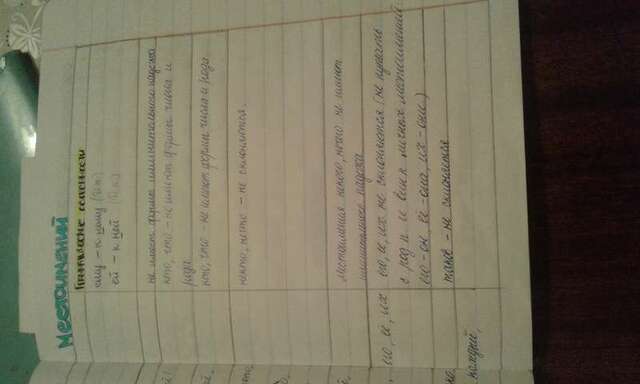 местоимений
Грамматические особенности
ему - к нему (Д.п.)
ей - к ней (Д.п.)
не имеет формы именительного падежа
кто, что - не имеют формы числа и
рода
кто, что - не имеют формы числа и рода
некто, нечто - не склоняются
местоимения некого, нечего не имеют
именительного падежа
его, ее, их
его, ее, их не склоняются (не путать
с род. и вин. п. личных местоимений
его - он, ее - она, их - они)
таков - не склоняется